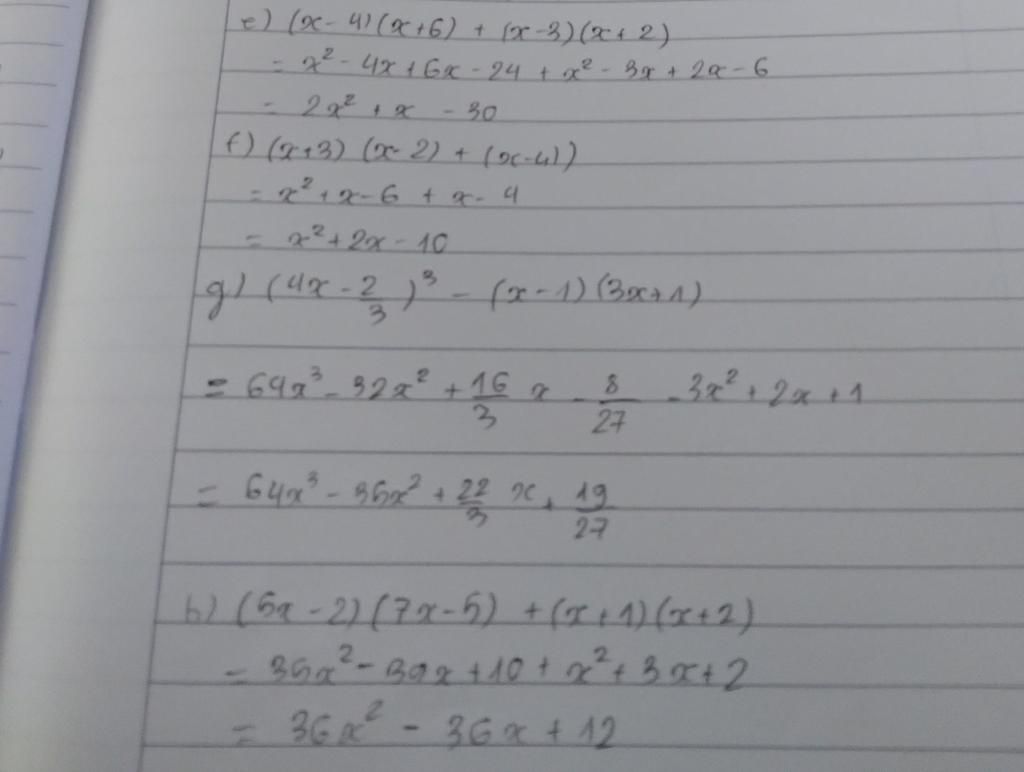 e) (x-4)(x+6) + (x-3)(x+2)
= x² - 4x + 6x - 24 + x² - 3x + 2x - 6
= 2x² + x - 30
f) (x+3) (x-2) + (x-4))
= x² + x - 6 + x - 4
= x² + 2x - 10
g) (4x - 2/3)³ - (x-1)(3x+1)
= 64x³ - 32x² + 16/3 x - 8/27 - 3x² + 2x + 1
= 64x³ - 35x² + 22/3 x + 19/27
h) (5x-2)(7x-5) + (x+1)(x+2)
= 35x² - 39x + 10 + x² + 3x + 2
= 36x² - 36x + 12